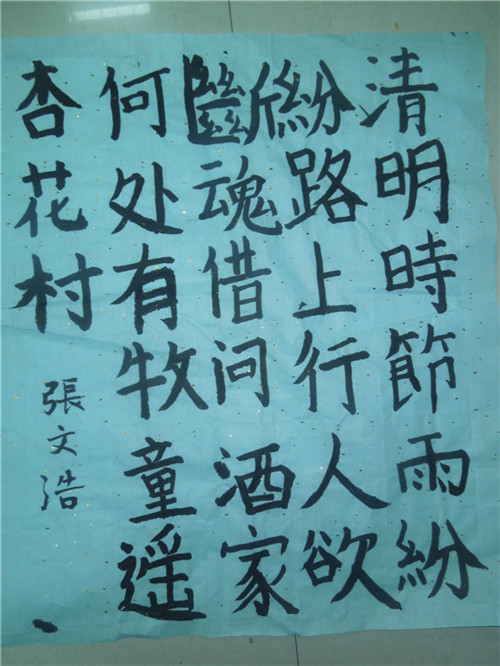 清明時節雨紛
紛路上行人欲
斷魂借问酒家
何处有牧童遥
杏花村
張文浩